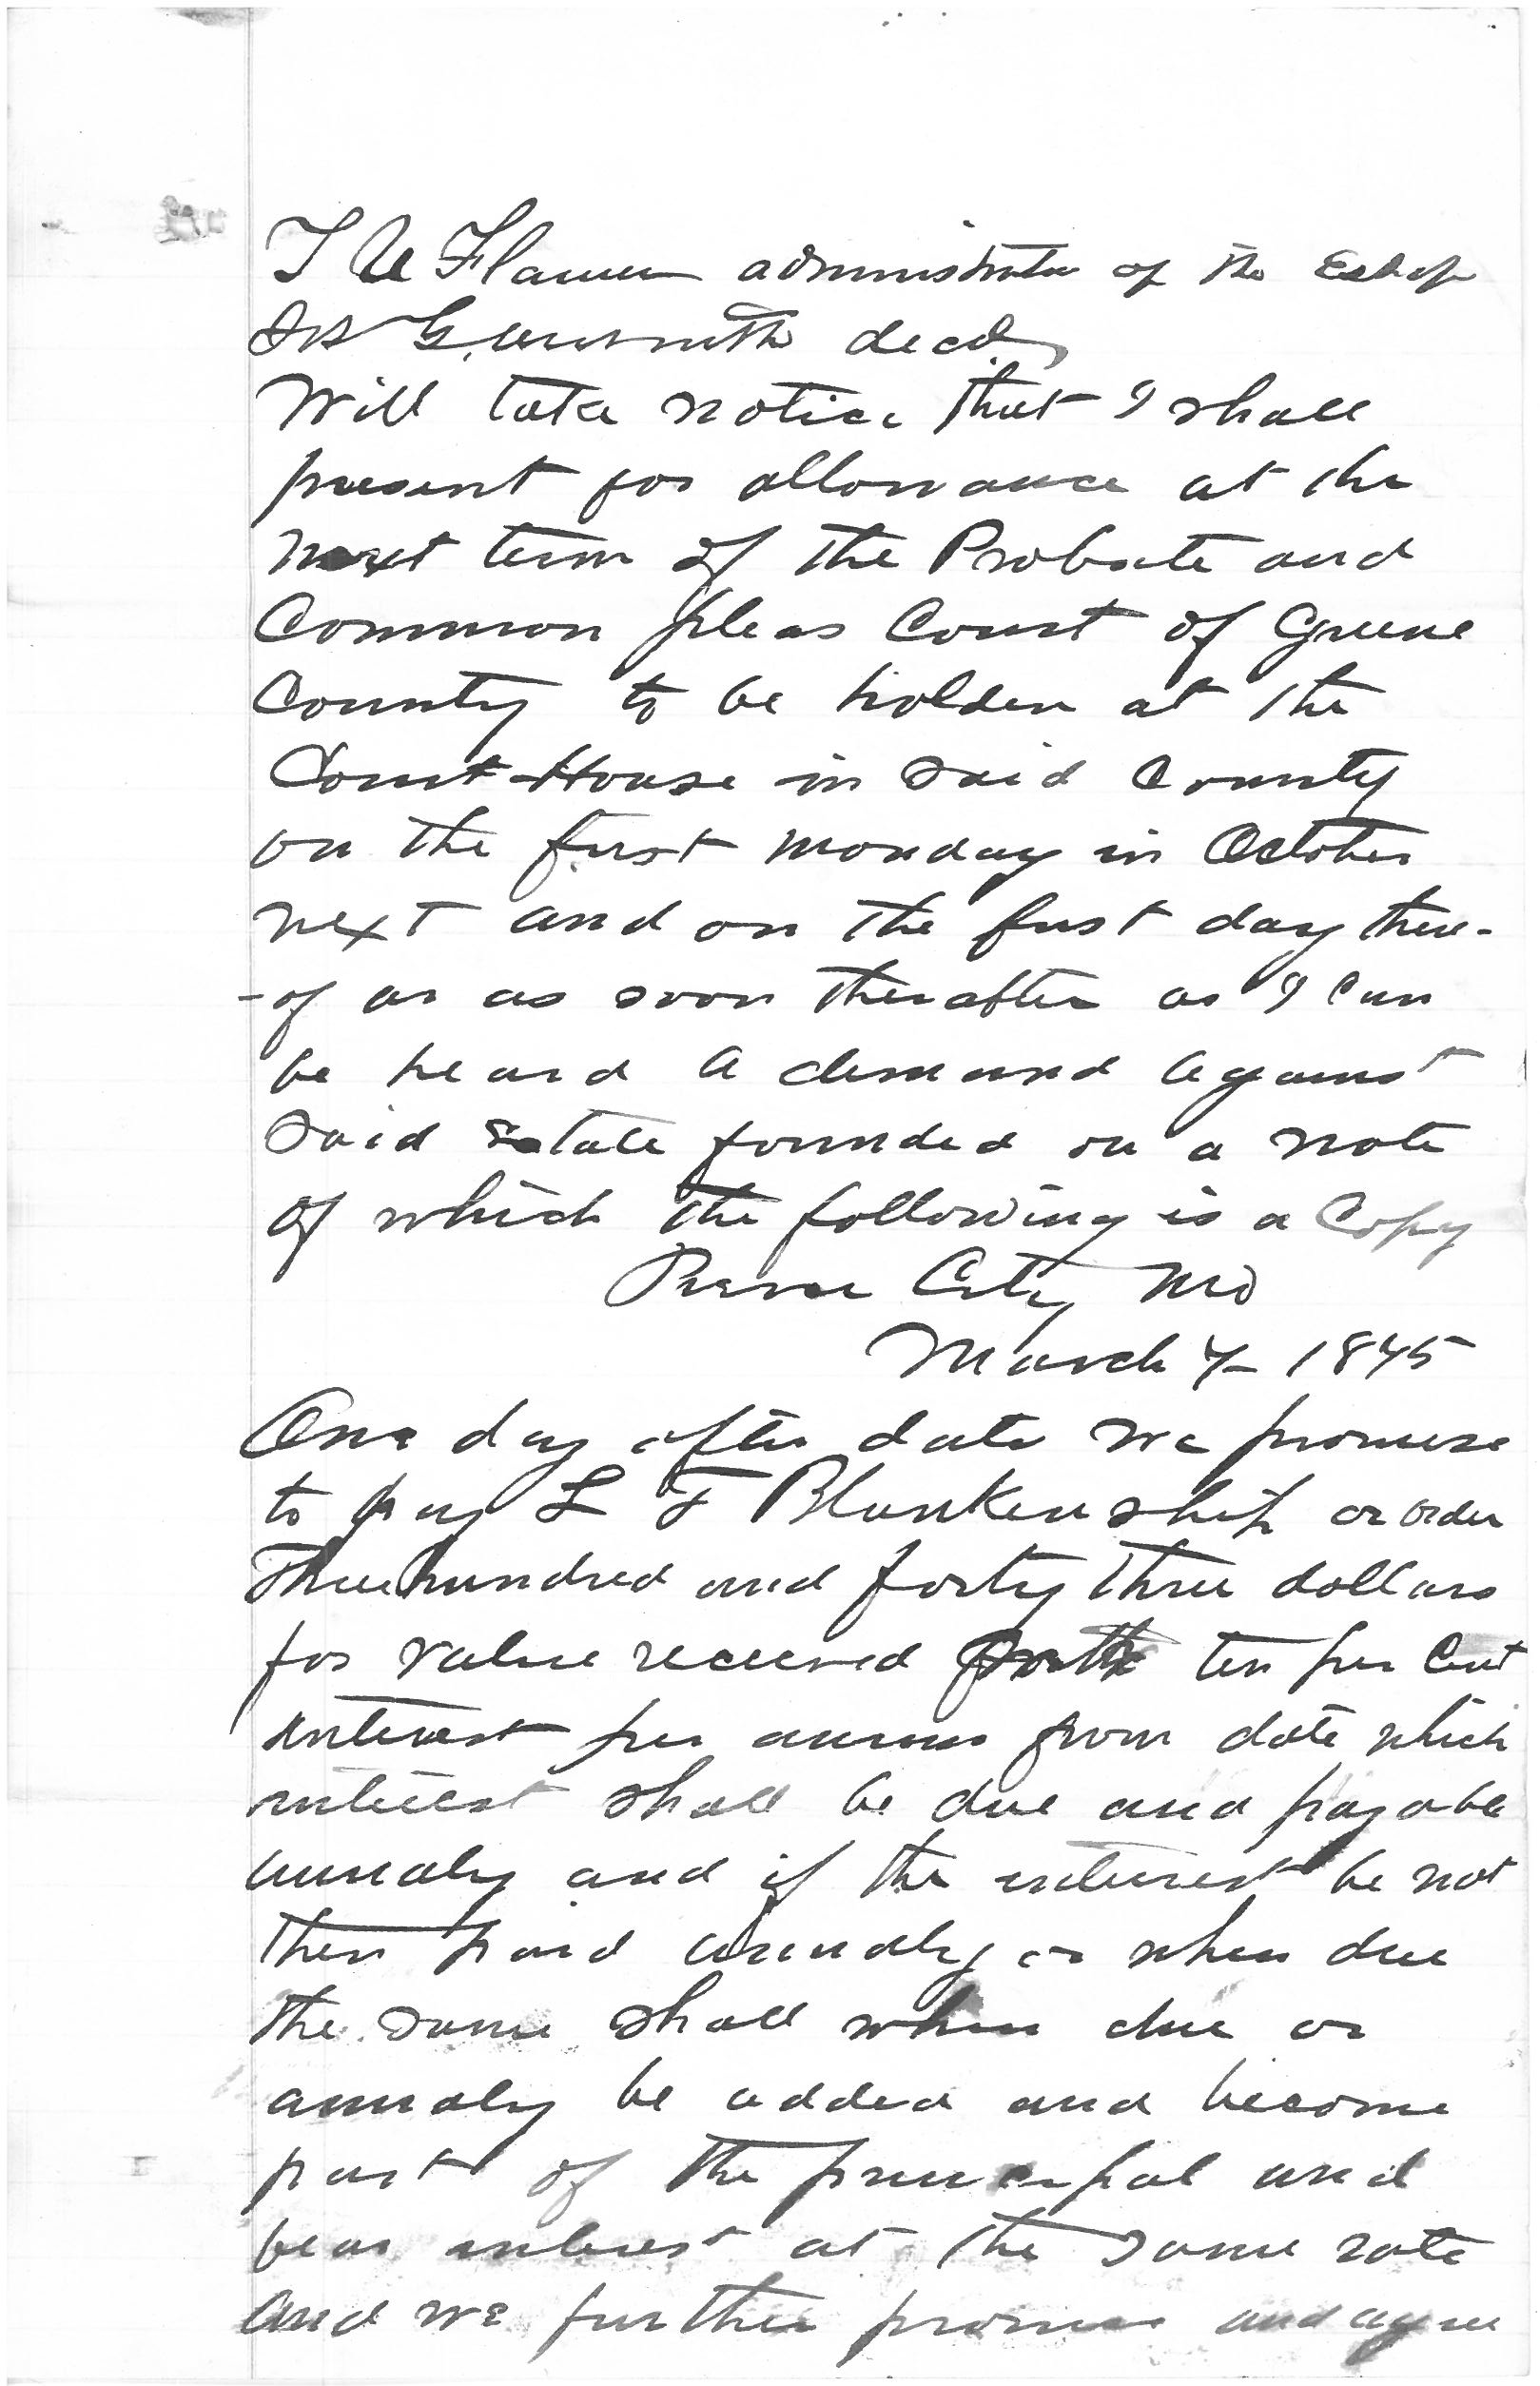 T U Flanner administrator of the Estate of
dec'd
Will take notice that I shall
present for allowance at the
next term of the Probate and
Common pleas Court of Greene
County to be holden at the
Court House in Said County
on the first monday in October
next and on the first day there-
-of or as soon thereafter as I Can
be heard a demand against
Said Estate founded on a note
of which the following is a Copy
City Mo
March 4- 1875
One day after date we promise
to pay L F Blankenship or order
Three hundred and forty three dollars
for value received ten per Cent
interest per annum from date which
interest shall be due and payable
annualy and if the interest be not
then paid annualy or when due
the same shall when due or
annualy be added and become
part of the principal and
bear interest at the same rate
and we further promise and agree